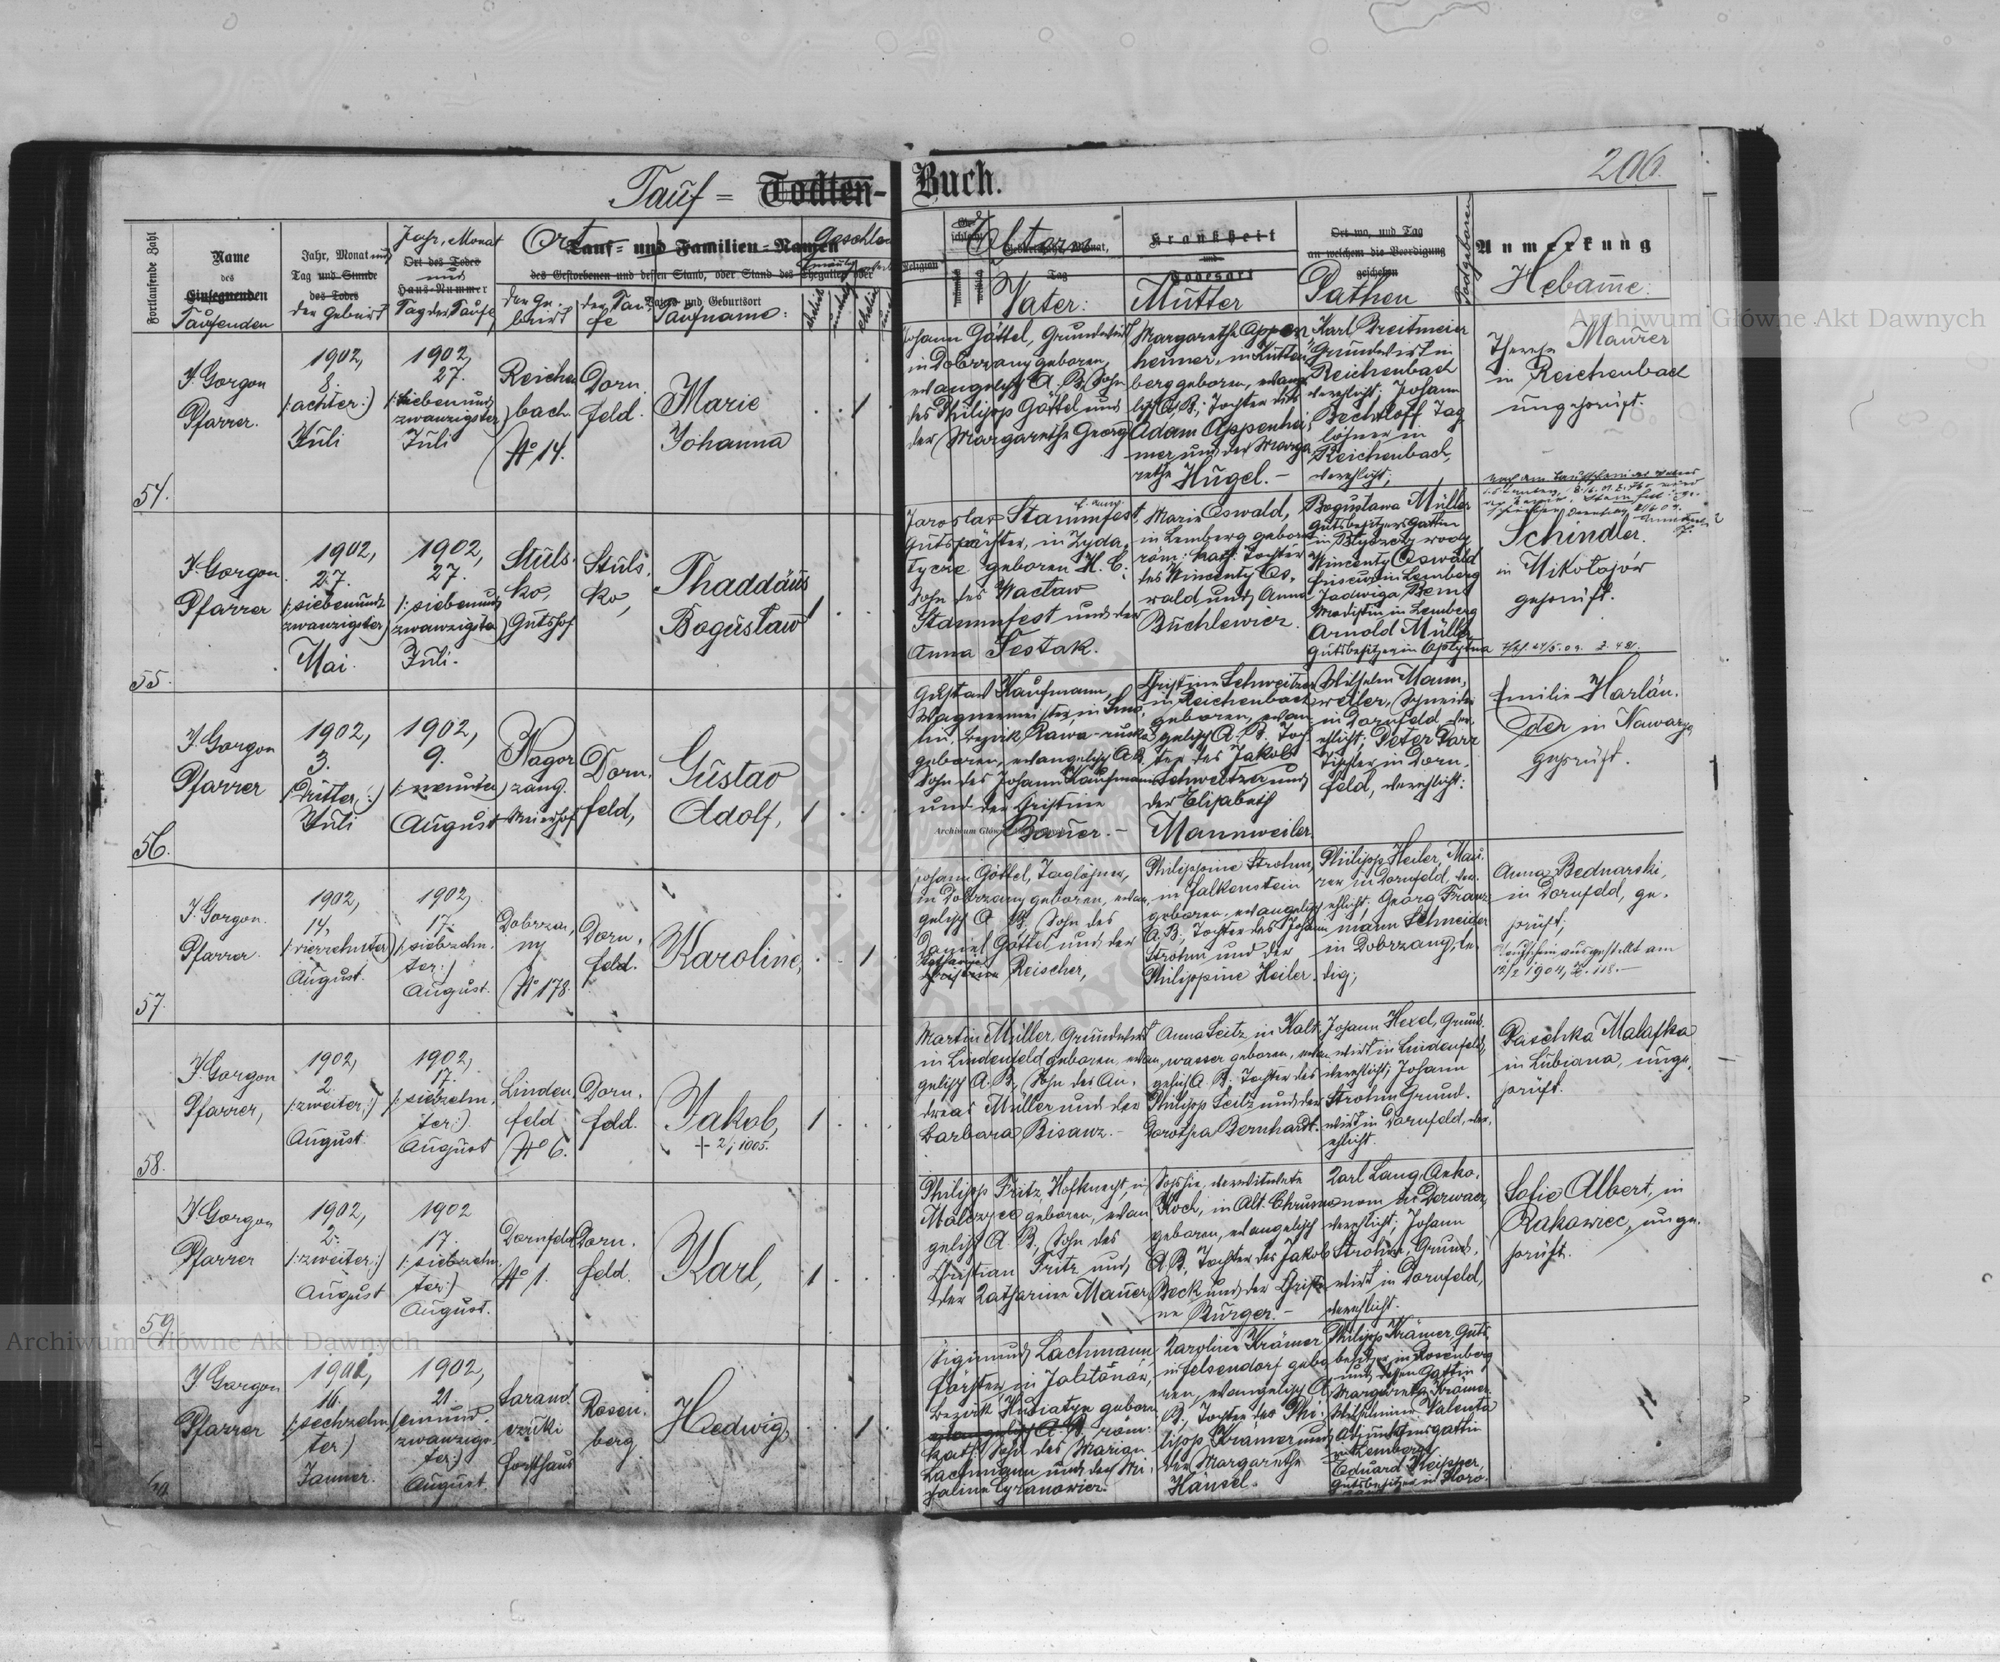 206.
Tauf = Todten-Buch.
Fortlaufende Zahl
Name
des
Einsegnenden
Taufenden
Jahr, Monat und
Tag und Stunde
des Todes
der Geburt
Jahr, Monat
Ort des Todes
und
Haus-Nummer
Tag der Taufe
Ort
Tauf- und Familien-Namen
des Gestorbenen und dessen Stand, oder Stand des Ehegatten oder
Vaters und Geburtsort
der Ge-
burt
der Tau-
fe
Taufname:
Religion
Eltern
Vater:
Krankheit
und
Todesart
Mutter
Ort wo, und Tag
an welchem die Beerdigung
geschehen
Pathen
Todgeboren
Anmerkung
Hebamme:
54.
J. Gorgon
Pfarrer.
1902,
8.
(:achter:)
Juli
1902,
27.
(:siebenund
zwanzigster)
Juli
Reichen
bach
No 14.
Dorn
feld.
Marie
Johanna
1
Johann Göttel, Grundwirt
in Dobrzany geboren,
evangelisch A. B., Sohn
des Philipp Göttel und
der Margarethe Georg
Margarethe Appen
heimer, in Hutten
berg geboren, evang
lisch A. B., Tochter des
Adam Appenhei
mer und der Marga
rethe Hügel. –
Karl Breitmeier
Grundwirt in
Reichenbach
verehlicht; Johann
Bechtloff Tag
löhner in
Reichenbach,
verehlicht;
Therese Maurer
in Reichenbach
ungeprüft.
55.
J. Gorgon
Pfarrer
1902,
27.
(:siebenund
zwanzigster)
Mai.
1902,
27.
(:siebenund
zwanzigste)
Juli.
Stuls
ko,
Gutshof
Stuls,
ko,
Thaddäus
Bogusław
1
Jaroslav Stammfest
Gutspächter, in Zyda,
tycze geboren H. C.
Sohn des Wacław
Stammfest und der
Anna Testak.
Marie Oswald,
in Lemberg geboren
röm. kath. Tochter
des Wincenty Os,
wald und Anna
Buchlewicz.
Bogusława Müller
Gutsbesitzers Gattin
Wincenty Oswald
friseur in Lemberg
Jadwiga Bem
Modistin in Lemberg
Arnold Müller
Gutsbesitzer in
Schindler.
in Mikołajów
geprüft.
56.
J. Gorgon
Pfarrer
1902,
3.
(:dritter:)
Juli
1902,
9.
(:neunter)
August
Nagor
zang.
Meierhof
Dorn
feld,
Gustav
Adolf,
1
Gustav Kaufmann,
Wagnermeister, in
lin, Bezirk Rawa-ruska
geboren, evangelisch A. B.
Sohn des Johann Kaufmann
und der Christine
Bauer. –
Christine Schweitzer
in Reichenbach
geboren, evan
gelisch A. B. Toch
ter des Jakob
Schweitzer und
der Elisabeth
Mannweiler.
Wilhelm Mann,
weiler, Schneider
in Dornfeld ver
ehlicht; Peter Parr
Tischler in Dorn,
feld, verehlicht.
Emilie Harlän,
der in Nawarya
geprüft.
57.
J. Gorgon.
Pfarrer
1902,
14,
(:vierzehnter)
August.
1902,
17.
(:siebzehn,
ter:)
August.
Dobrza,
ny
No 178.
Dorn,
feld.
Karoline,
1
Johann Göttel, Taglöhner,
in Dobrzany geboren, evan,
gelisch A. B., Sohn des
Daniel Göttel und der
Katharine
Christine Reischer,
Philippine Strohm,
in Falkenstein
geboren, evangelisch
A. B., Tochter des Johann
Strohm und der
Philippine Heiler.
Philipp Heiler, Mau,
rer in Dornfeld, ver,
ehlicht, Georg Franz
mann Schneider
in Dobrzany, le,
dig;
Anna Bednarski,
in Dornfeld, ge,
prüft;
Taufschein ausgestellt am
12/2 1904, Z. 118. –
58.
J. Gorgon
Pfarrer,
1902,
2.
(:zweiter:)
August.
1902,
17.
(:siebzehn,
ter:)
August
Linden,
feld
No 6.
Dorn,
feld.
Jakob,
1
Martin Müller, Grundwirt
in Lindenfeld geboren, evan,
gelisch A. B., Sohn des An,
dreas Müller und der
Barbara Bisanz. –
Anna Seitz, in Kalt,
wasser geboren, evan,
gelisch A. B. Tochter des
Philipp Seitz und der
Dorothea Bernhardt.
Johann Hexel, Grund,
wirt in Lindenfeld,
verehlicht; Johann
Strohm Grund,
wirt in Dornfeld, ver,
ehlicht.
Paschka Malafka
in Lubiana, unge,
prüft.
59.
J. Gorgon
Pfarrer
1902,
2.
(:zweiter:)
August
1902
17.
(:siebzehn,
ter:)
August.
Dornfeld
No 1.
Dorn,
feld.
Karl,
1
Philipp Fritz, Hofknecht, in
Malczyce geboren, evan
gelisch A. B., Sohn des
Christian Fritz und,
der Katharine Mauer,
Sophie, verwitwete
Koch, in Alt. Chrusno
geboren, evangelisch
A. B., Tochter des Jakob
Beck und der Christi
ne Burger. –
Karl Lang, Oeko,
nom in Derwacz,
verehlicht; Johann
Strohm, Grund,
wirt, in Dornfeld,
verehlicht.
Sofie Albert, in
Rakowiec, unge,
prüft.
60
J. Gorgon
Pfarrer
16.
(:sechzehn
ter:)
Jänner.
1902,
21.
(:einund,
zwanzigs,
ter:)
August
Forsthaus
Rosen,
berg
Hedwig,
1
Sigmund Lachmann,
Förster in
Bezirk Husiatyn geboren
evangelisch A. B. röm.
kath. Sohn des Marian
Lachmann und der Mi,
chaline Cyranowicz.
Karoline Krämer
in Felsendorf gebo
ren, evangelisch A.
B., Tochter des Phi,
lipp Krämer und
der Margarethe
Hänsel.
Philipp Krämer, Guts,
besitzer, in Rosenberg
und dessen Gattin
Margareth Krämer
Wilhelmine Valenta
Adjunktensgattin
in Lemberg
Eduard Keipper,
Gutsbesitzer in
Archiwum Główne Akt Dawnych
Archiwum Główne Akt Dawnych